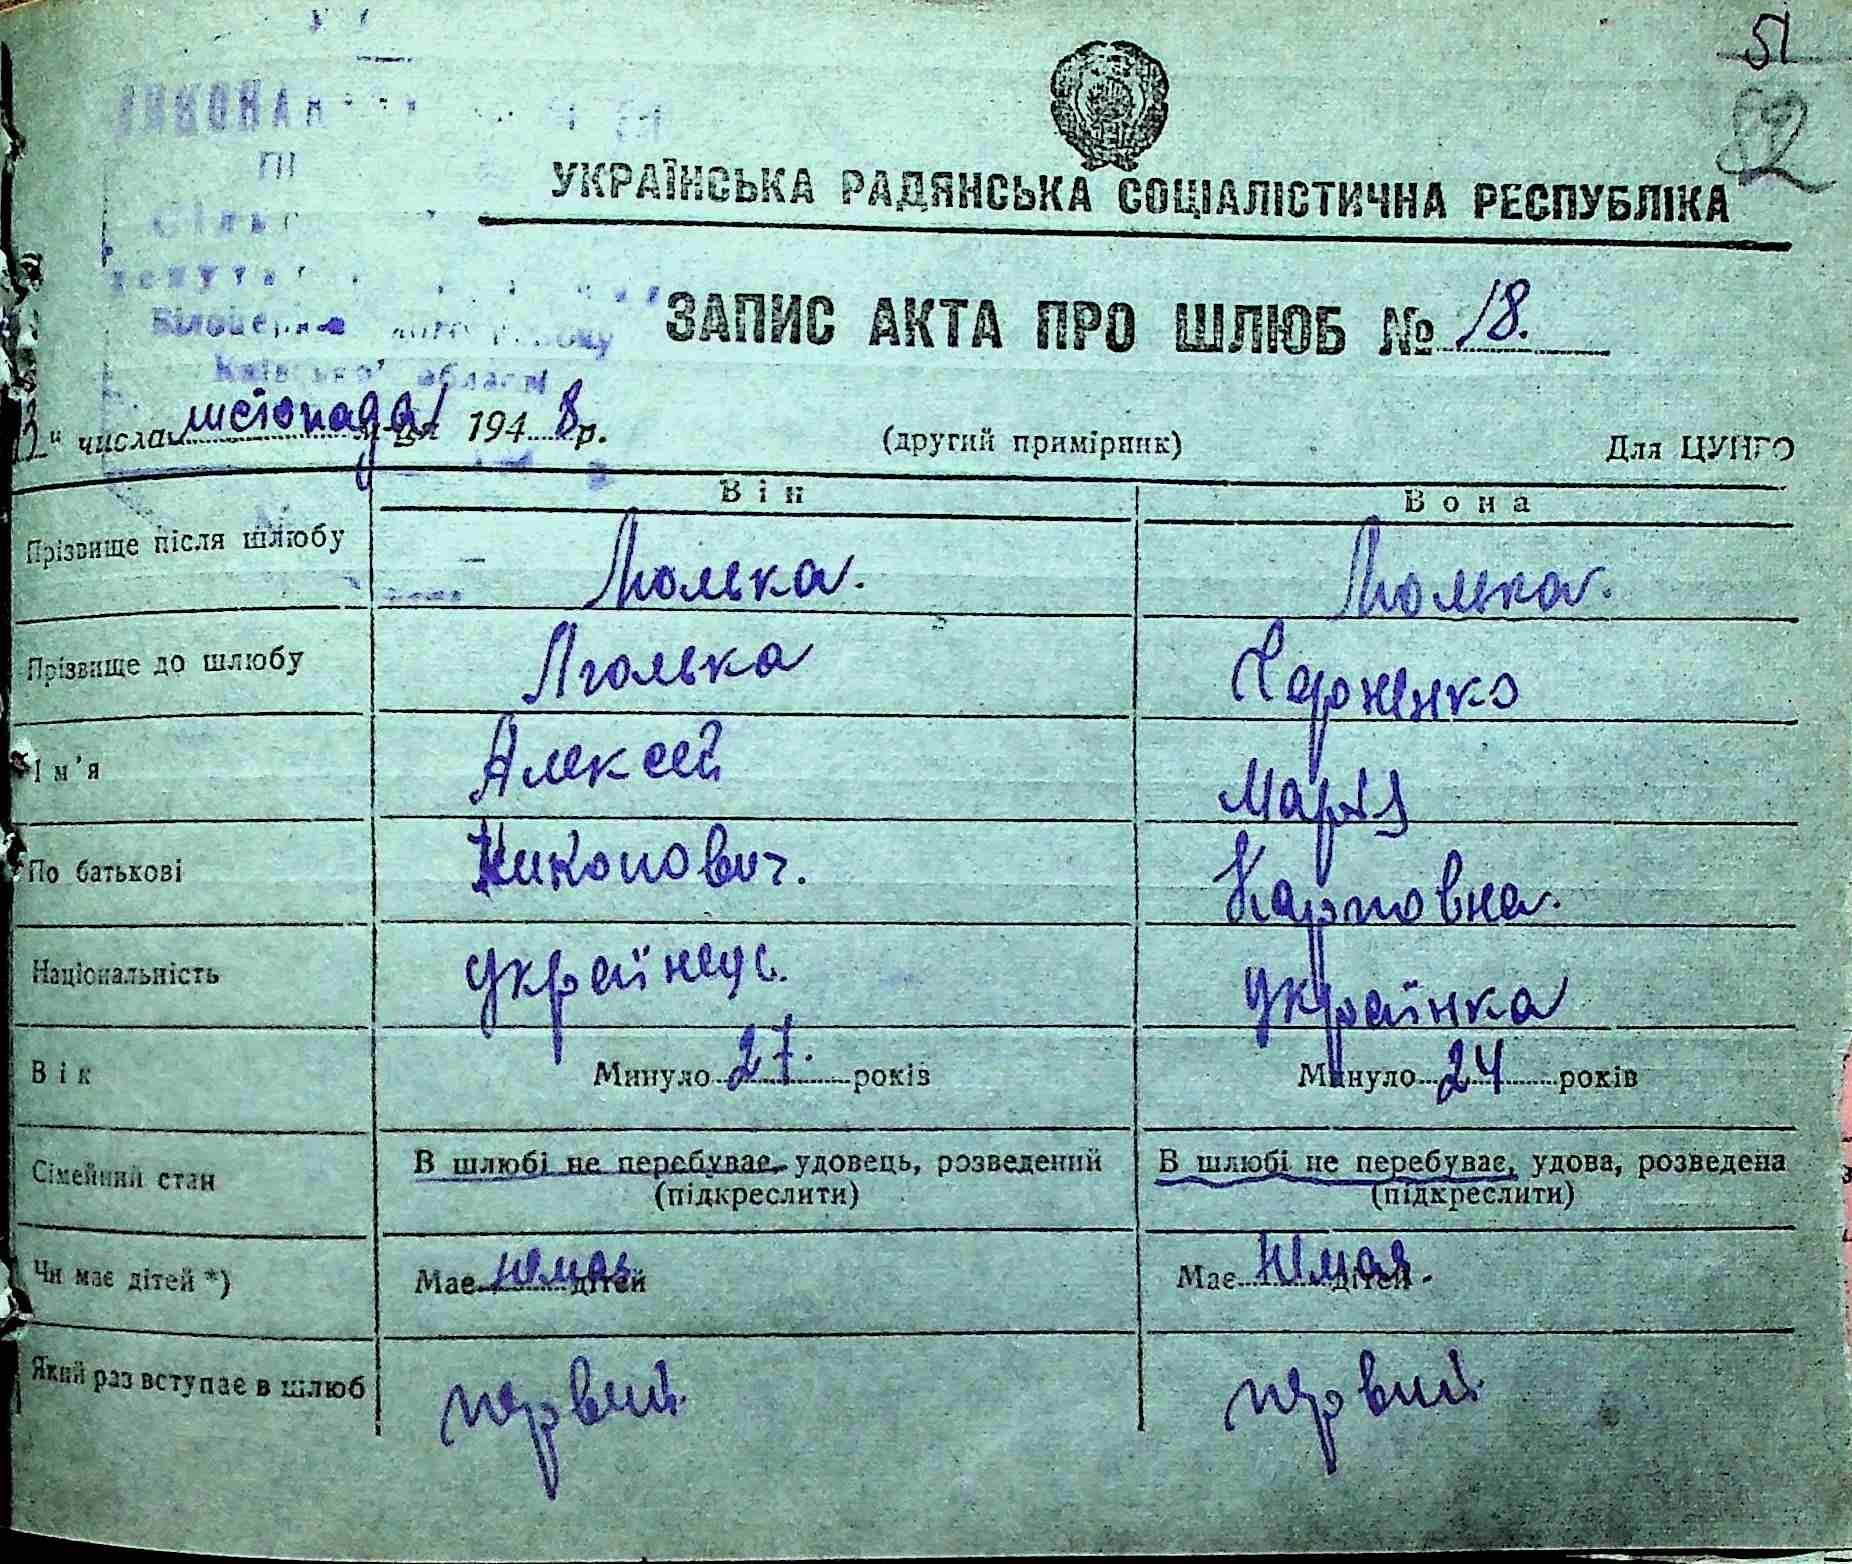 51
52
УКРАЇНСЬКА РАДЯНСЬКА СОЦІАЛІСТИЧНА РЕСПУБЛІКА
Білоцерк
Київської області
ЗАПИС АКТА ПРО ШЛЮБ № 18.
" числа листопада м-ця 1948 р. (другий примірник) Для ЦУНГО
Він Вона
Прізвище після шлюбу Люлька. Люлька.
Прізвище до шлюбу Люлька
Ім'я Алексей Марія
По батькові Никонович. Карповна.
Національність українець. українка
Вік Минуло 27. років Минуло 24 років
Сімейний стан В шлюбі не перебуває, удовець, розведений В шлюбі не перебуває, удова, розведена
(підкреслити) (підкреслити)
Чи має дітей *) Має немає дітей Має немає дітей.
Який раз вступає в шлюб первий первий